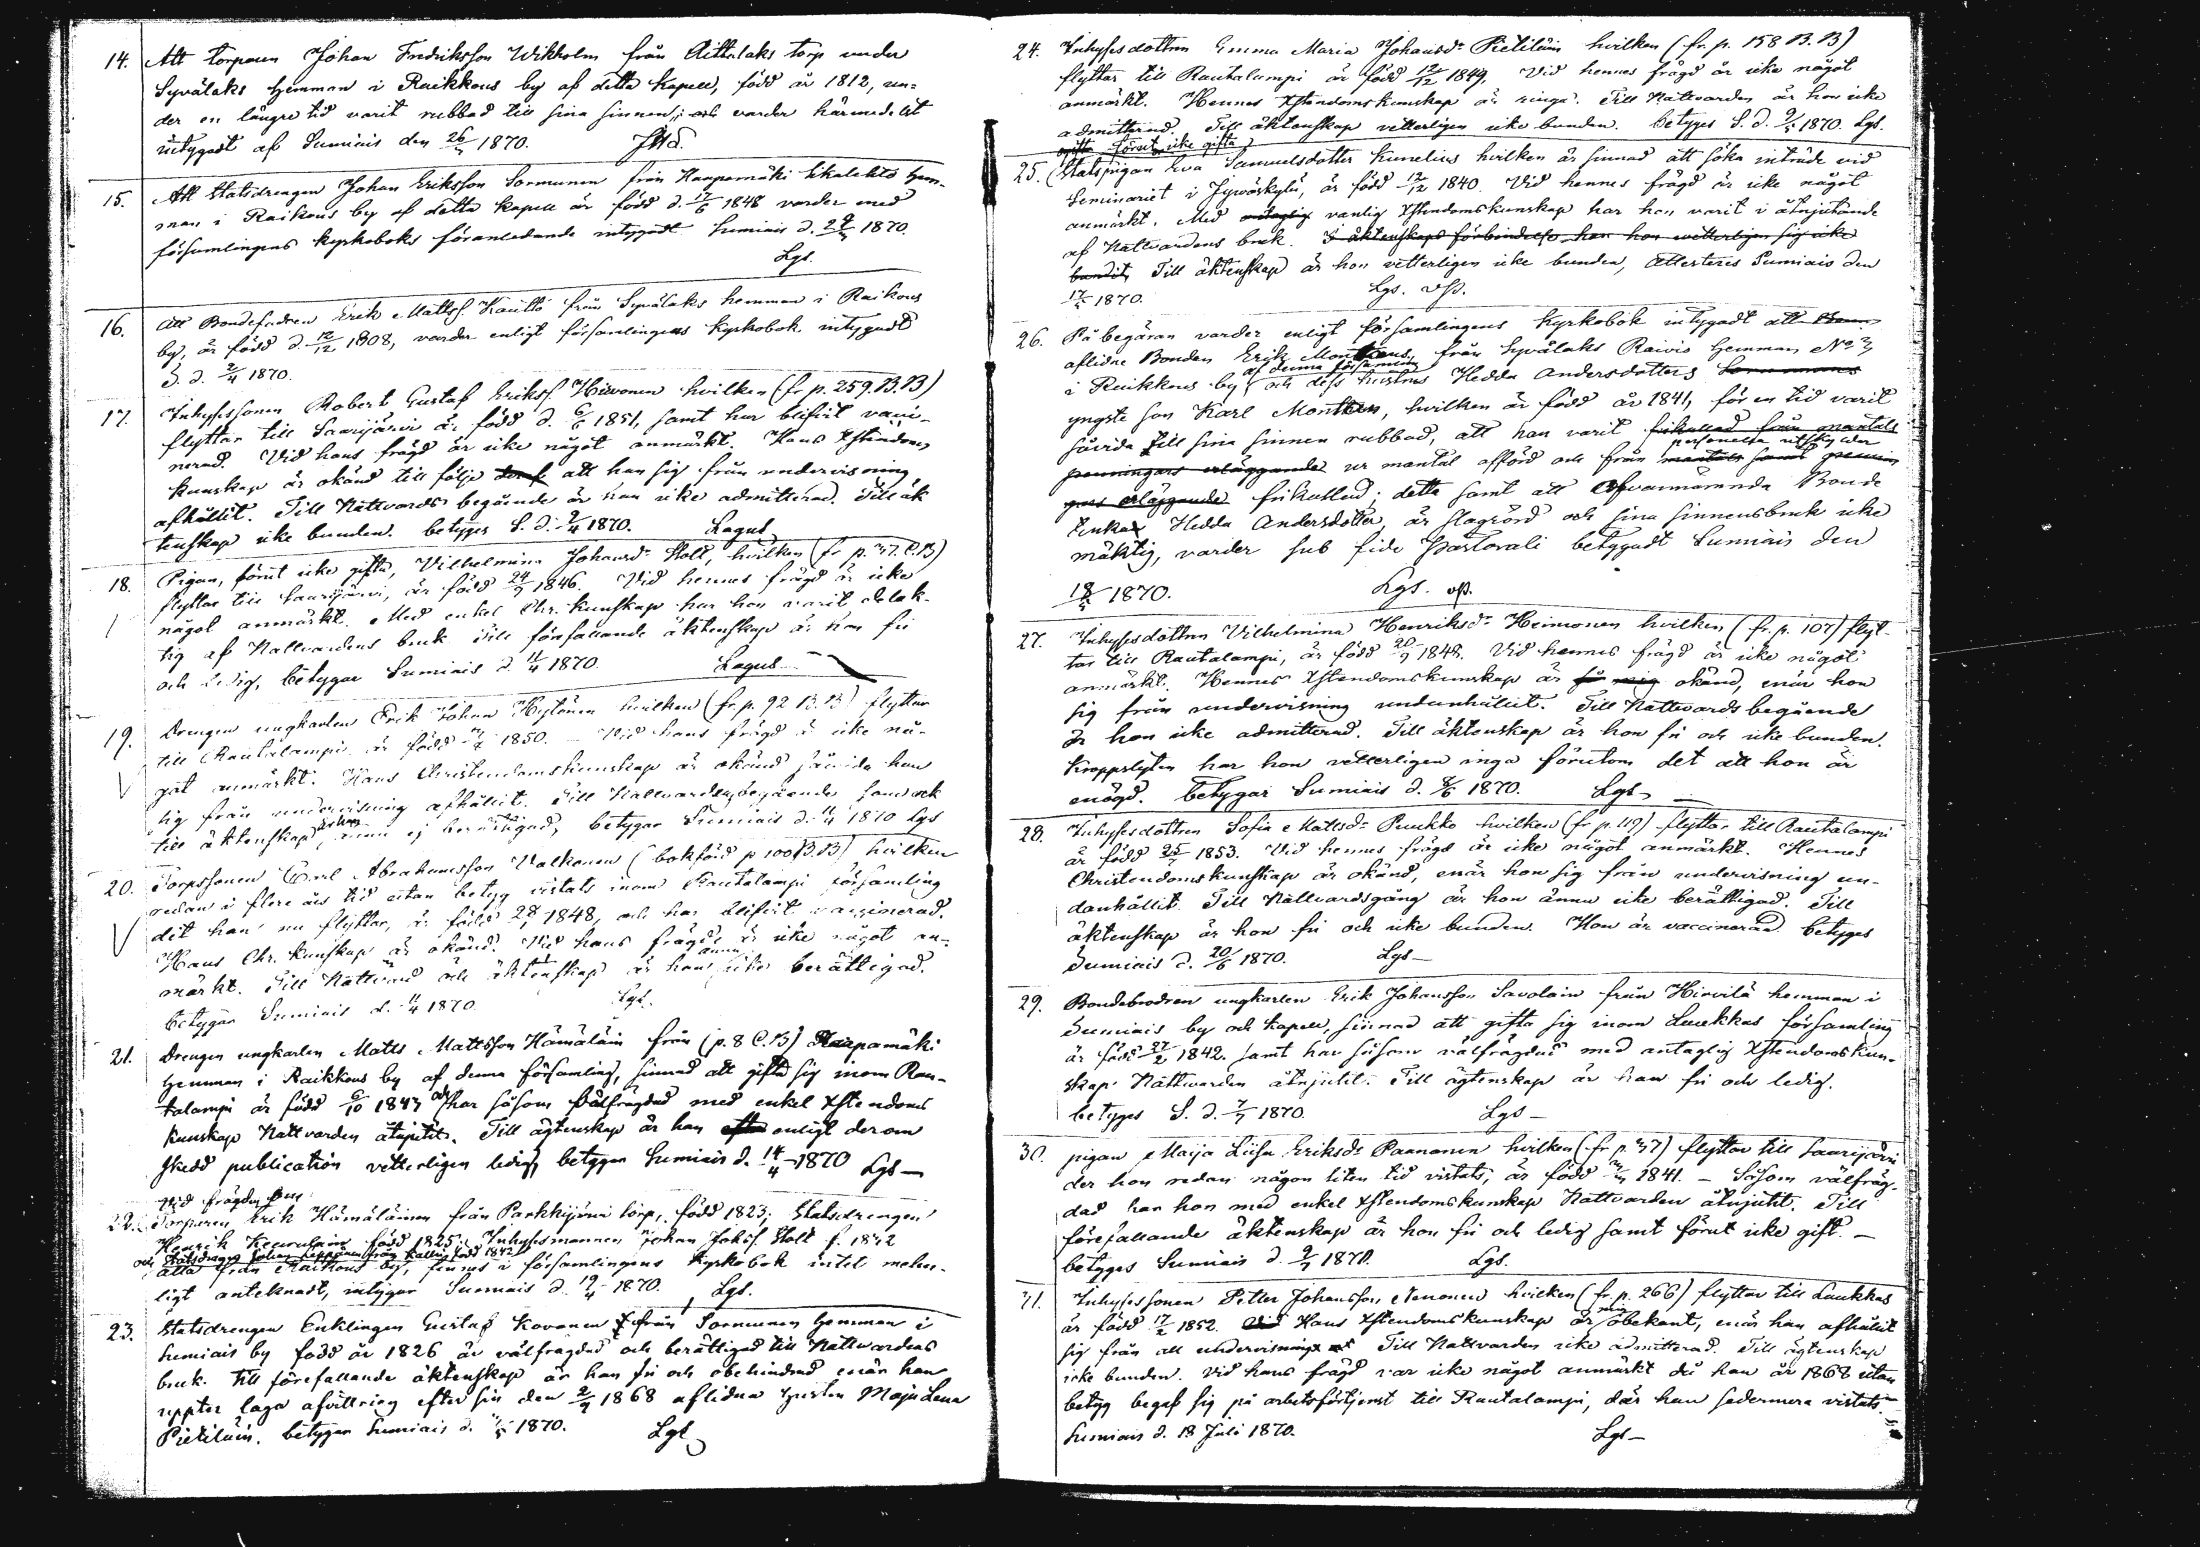 14. Att torparen Johan Fredriksson Wikholm från Aittalaks torp under
Syvälaks hemman i Raikkous by af detta kapell, född år 1812, un-
der en längre tid varit rubbad till sina sinnen, och varder härmedelst
intygadt af Sumiais den 1870.
15. Att Statsdrengen Johan Eriksson Sormunen från Haapamäki hemman
man i Raikkous by af detta kapell är född d. 17/6 1848 varder med
församlingens kyrkoboks föranledande intygadt Sumiais d. 1870.
Lgs.
16. Att Bondefadren Erik Mattss. Kautto från Syvälaks hemman i Raikous
by, är född d. 12/12 1808, varder enligt församlingens kyrkobok intygadt
S. d. 2/4 1870.
17. Inhysessonen Robert Gustaf Erikss. Hirvonen hvilken (fr p. 259. B.B)
flyttar till Saarijärvi är född d. 1851, samt har blifvit vacci-
nerad. Vid hans frägd är icke något anmärkt. Hans Xstendoms
kunskap är okänd till följe att han sig från undervisning
afhållit. Till Nattvards begående är han icke admitterad. Till äk
tenskap icke bunden. betyges S. d. 2/4 1870. Lagus
18. Pigan, förut icke gifta, Vilhelmina Johansdr Stolt, hvilken (fr p. 37. C.B)
flyttar till Saarijärvi, är född 24/7 1846. Vid hennes frägd är icke
något anmärkt. Med enkel Chr. kunskap har hon varit delak-
tig af Nattvardens bruk. Till förefallande äktenskap är hon fri
och ledig, betygar Sumiais d. 11/4 1870. Lagus
19. Drengen ungkarlen Erik Johan Hytönen hvilken (fr. p. 92 B.B) flyttar
till Rautalampi är född 1850. Vid hans frägd är icke nå-
got anmärkt. Hans Christendomskunskap är okänd såvida han
sig från undervisning afhållit. Till Nattvardens begående samt och
till äktenskap är han ännu ej berättigad, betygar Sumiais d. 11/4 1870 Lgs
20. Torpssonen Carl Abrahamsson Valkonen (bokförd p 100 B.B) hvilken
redan i flere års tid utan betyg vistats inom Rautalampi församling
dit han nu flyttar, är född 1848, och har blifvit vaccinerad.
Hans Chr. kunskap är okänd. Vid hans frägd är icke något an-
märkt. Till Nattvard och äktenskap är han ännu icke berättigad.
betygar Sumiais d. 11/4 1870. Lgs.
21. Drengen ungkarlen Matts Mattsson Hämäläin från (p. 8 C.B) Haapamäki
hemman i Raikkous by af denna församling, sinnad att gifta sig inom Rau-
talampi är född 6/10 1847 och har såsom välfrägdad med enkel Xstendoms
kunskap Nattvarden åtnjutit. Till ägtenskap är han enligt derom
skedd publication vetterligen ledig, betygar Sumiais d. 14/4 1870 Lgs
Vid frägden hos
22. Torparen Erik Hämäläinen från Parkkijärvi torp, född 1823; Statsdrengen
Henrik född 1825; Inhysesmannen Johan Jokif Stolt f. 1842
och Statsdrengen Johan från Kallio född 1842
alla från Raikkous by, finnes i församlingens kyrkobok intet mehn-
ligt anteknadt, intygar Sumiais d. 19/4 1870. Lgs.
23. Statsdrengen Enklingen Gustaf Kovonen från Sormunen hemman i
Sumiais by född år 1826 är välfrägdad och berättigad till Nattvardens
bruk. Till förefallande äktenskap är han fri och obehindrad enär han
uppter laga afvittring efter sin den 1868 aflidna hustru Maja Lena
Pietiläin. betygar Sumiais d. 1870. Lgs
24. Inhysesdottren Emma Maria Johansdr Pietiläin hvilken (fr. p. 158 B.B)
flyttar till Rautalampi är född 12/12 1849. Vid hennes frägd är icke något
anmärkt. Hennes Xstendomskunskap är ringa. Till Nattvarden är hon icke
admitterad. Till äktenskap vetterligen icke bunden. betyges S. d. 1870. Lgs.
förut icke gifta
25. Statspigan Eva Samuelsdotter Kunelius hvilken är sinnad att söka inträde vid
Seminariet i Jyväskylä, är född 12/12 1840. Vid hennes frägd är icke något
anmärkt. Med vanlig Xstendomskunskap har hon varit i åtnjutande
af Nattvardens bruk. I äktenskaps förbindelse har hon vetterligen sig icke
bundit, Till äktenskap är hon vetterligen icke bunden, attesteres Sumiais den
1870. Lgs.
26. På begäran varder enligt församlingens kyrkobok intygadt att
aflidne Bonden Erik från Syvälaks Raivio hemman No 3
i Raikkous by af denna församling och dess hustrus Hedda Andersdotters
yngste son Karl, hvilken är född år 1841, för en tid varit
såvida till sina sinnen rubbad, att han varit frikallad från mantals
penningars erläggande ur mantal afförd och från personella utskylder
gars erläggande frikallad; detta samt att ofvannämnda Bonde
Enka Hedda Andersdotter, är slagrörd och sina sinnens bruk icke
mäktig, varder sub fide pastorali betygadt Sumiais den
1870. Lgs.
27. Inhysesdottren Vilhelmina Henriksdr Heimonen hvilken (fr. p. 107) flyt-
tar till Rautalampi, är född 1848. Vid hennes frägd är icke något
anmärkt. Hennes Xstendomskunskap är okänd, enär hon
sig från undervisning undanhållit. Till Nattvards begående
är hon icke admitterad. Till äktenskap är hon fri och icke bunden.
Kroppslyten har hon vetterligen inga förutom det att hon är
enögd. betygar Sumiais d. 1870. Lgs
28. Inhysesdottren Sofia Mattsdr Puukko hvilken (fr p. 119) flyttar till Rautalampi
är född 1853. Vid hennes frägd är icke något anmärkt. Hennes
Christendomskunskap är okänd, enär hon sig från undervisning un-
danhållit. Till Nattvardsgång är hon ännu icke berättigad. Till
äktenskap är hon fri och icke bunden. Hon är vaccinerad betyges
Sumiais d. 20/6 1870. Lgs
29. Bondebrodren ungkarlen Erik Johansson Savolain från Hirvilä hemman i
Sumiais by och kapell, sinnad att gifta sig inom Laukkas församling
är född 27/2 1842. samt har såsom välfrägdad med antaglig Xstendomskun-
skap Nattvarden åtnjutit. Till ägtenskap är han fri och ledig.
betyges S. d. 7/7 1870. Lgs
30. pigan Maija Liisa Eriksdr Paananen hvilken (fr p. 37) flyttar till Saarijärvi
der hon redan någon liten tid vistats, är född 1841. Såsom välfräg-
dad har hon med enkel Xstendomskunskap Nattvarden åtnjutit. Till
förefallande äktenskap är hon fri och ledig samt förut icke gift.
betyges Sumiais d. 1870. Lgs.
31. Inhysessonen Petter Johansson Nenonen hvilken (fr. p. 266) flyttar till Laukkas
är född 17/2 1852. Hans Xstendomskunskap är mig obekant, enär han afhållit
sig från all undervisning. Till Nattvarden icke admitterad. Till ägtenskap
icke bunden. Vid hans frägd var icke något anmärkt då han år 1868 utan
betyg begaf sig på arbetsförtjenst till Rautalampi, där han sedermera vistats
Sumiais d. 18 Juli 1870. Lgs